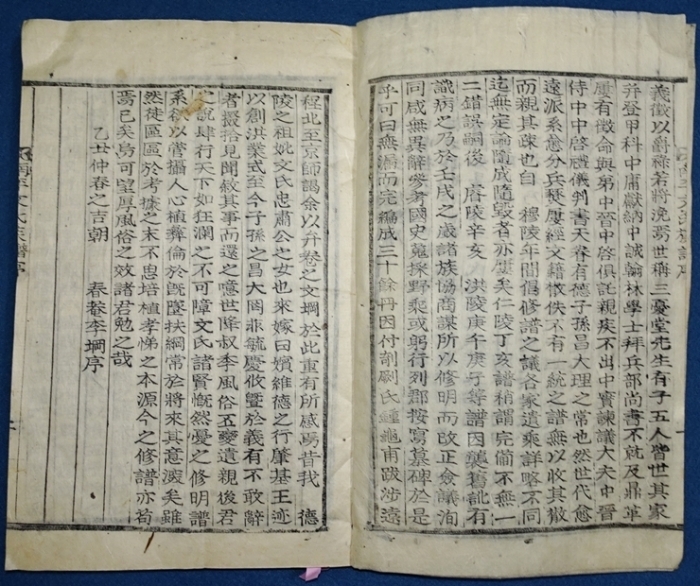 義徵以爵祿若將浼焉世稱三憂堂先生有子五人皆世其家
幷登甲科中庸獻納中誠翰林學士拜兵部尚書不就及鼎革
屢有徵命與弟中晉中啓俱託親疾不出中實諫議大夫中晉
侍中中啓禮儀判書天眷有德子孫昌大理之常也然世代愈
遠派系愈分兵燹屢經文籍散佚不有一統之譜無以收其散
而親其疎也自 穆陵年間倡修譜之議各家遺乘詳略不同
迄無定論隨成隨毁者亦屢矣仁陵丁亥譜稍謂完備不無一
二錯誤嗣後 陵辛亥 洪陵庚午庚子等譜因襲舊訛有
識病之乃於壬戌之歲諸族協商謀所以修明而改正僉議洵
同咸無異辭參考國史蒐採野乘或躬行列郡按寫墓碑於是
乎可曰無漏而完編成三十餘冊因付剞劂氏鍾龜甫跋涉遠
程北至京師謁余以弁卷之文堈於此重有所感焉昔我 德
陵之祖妣文氏忠肅公之女也來嫁曰嬪維德之行肇基王迹
以創洪業式至今子孫之昌大罔非毓慶攸曁於義有不敢辭
者掇拾見聞敍其事而還之噫世降叔季風俗五變遺親後君
之說肆行天下如狂瀾之不可障文氏諸賢慨然憂之修明譜
系欲以管攝人心植彛倫於旣墜扶綱常於將來其意淑矣雖
然徒區區於考據之末不思培植孝悌之本源今之修譜亦苟
焉已矣烏可望厚風俗之效諸君勉之哉
乙丑仲春之吉朝 春菴李堈序
南平文氏族譜序